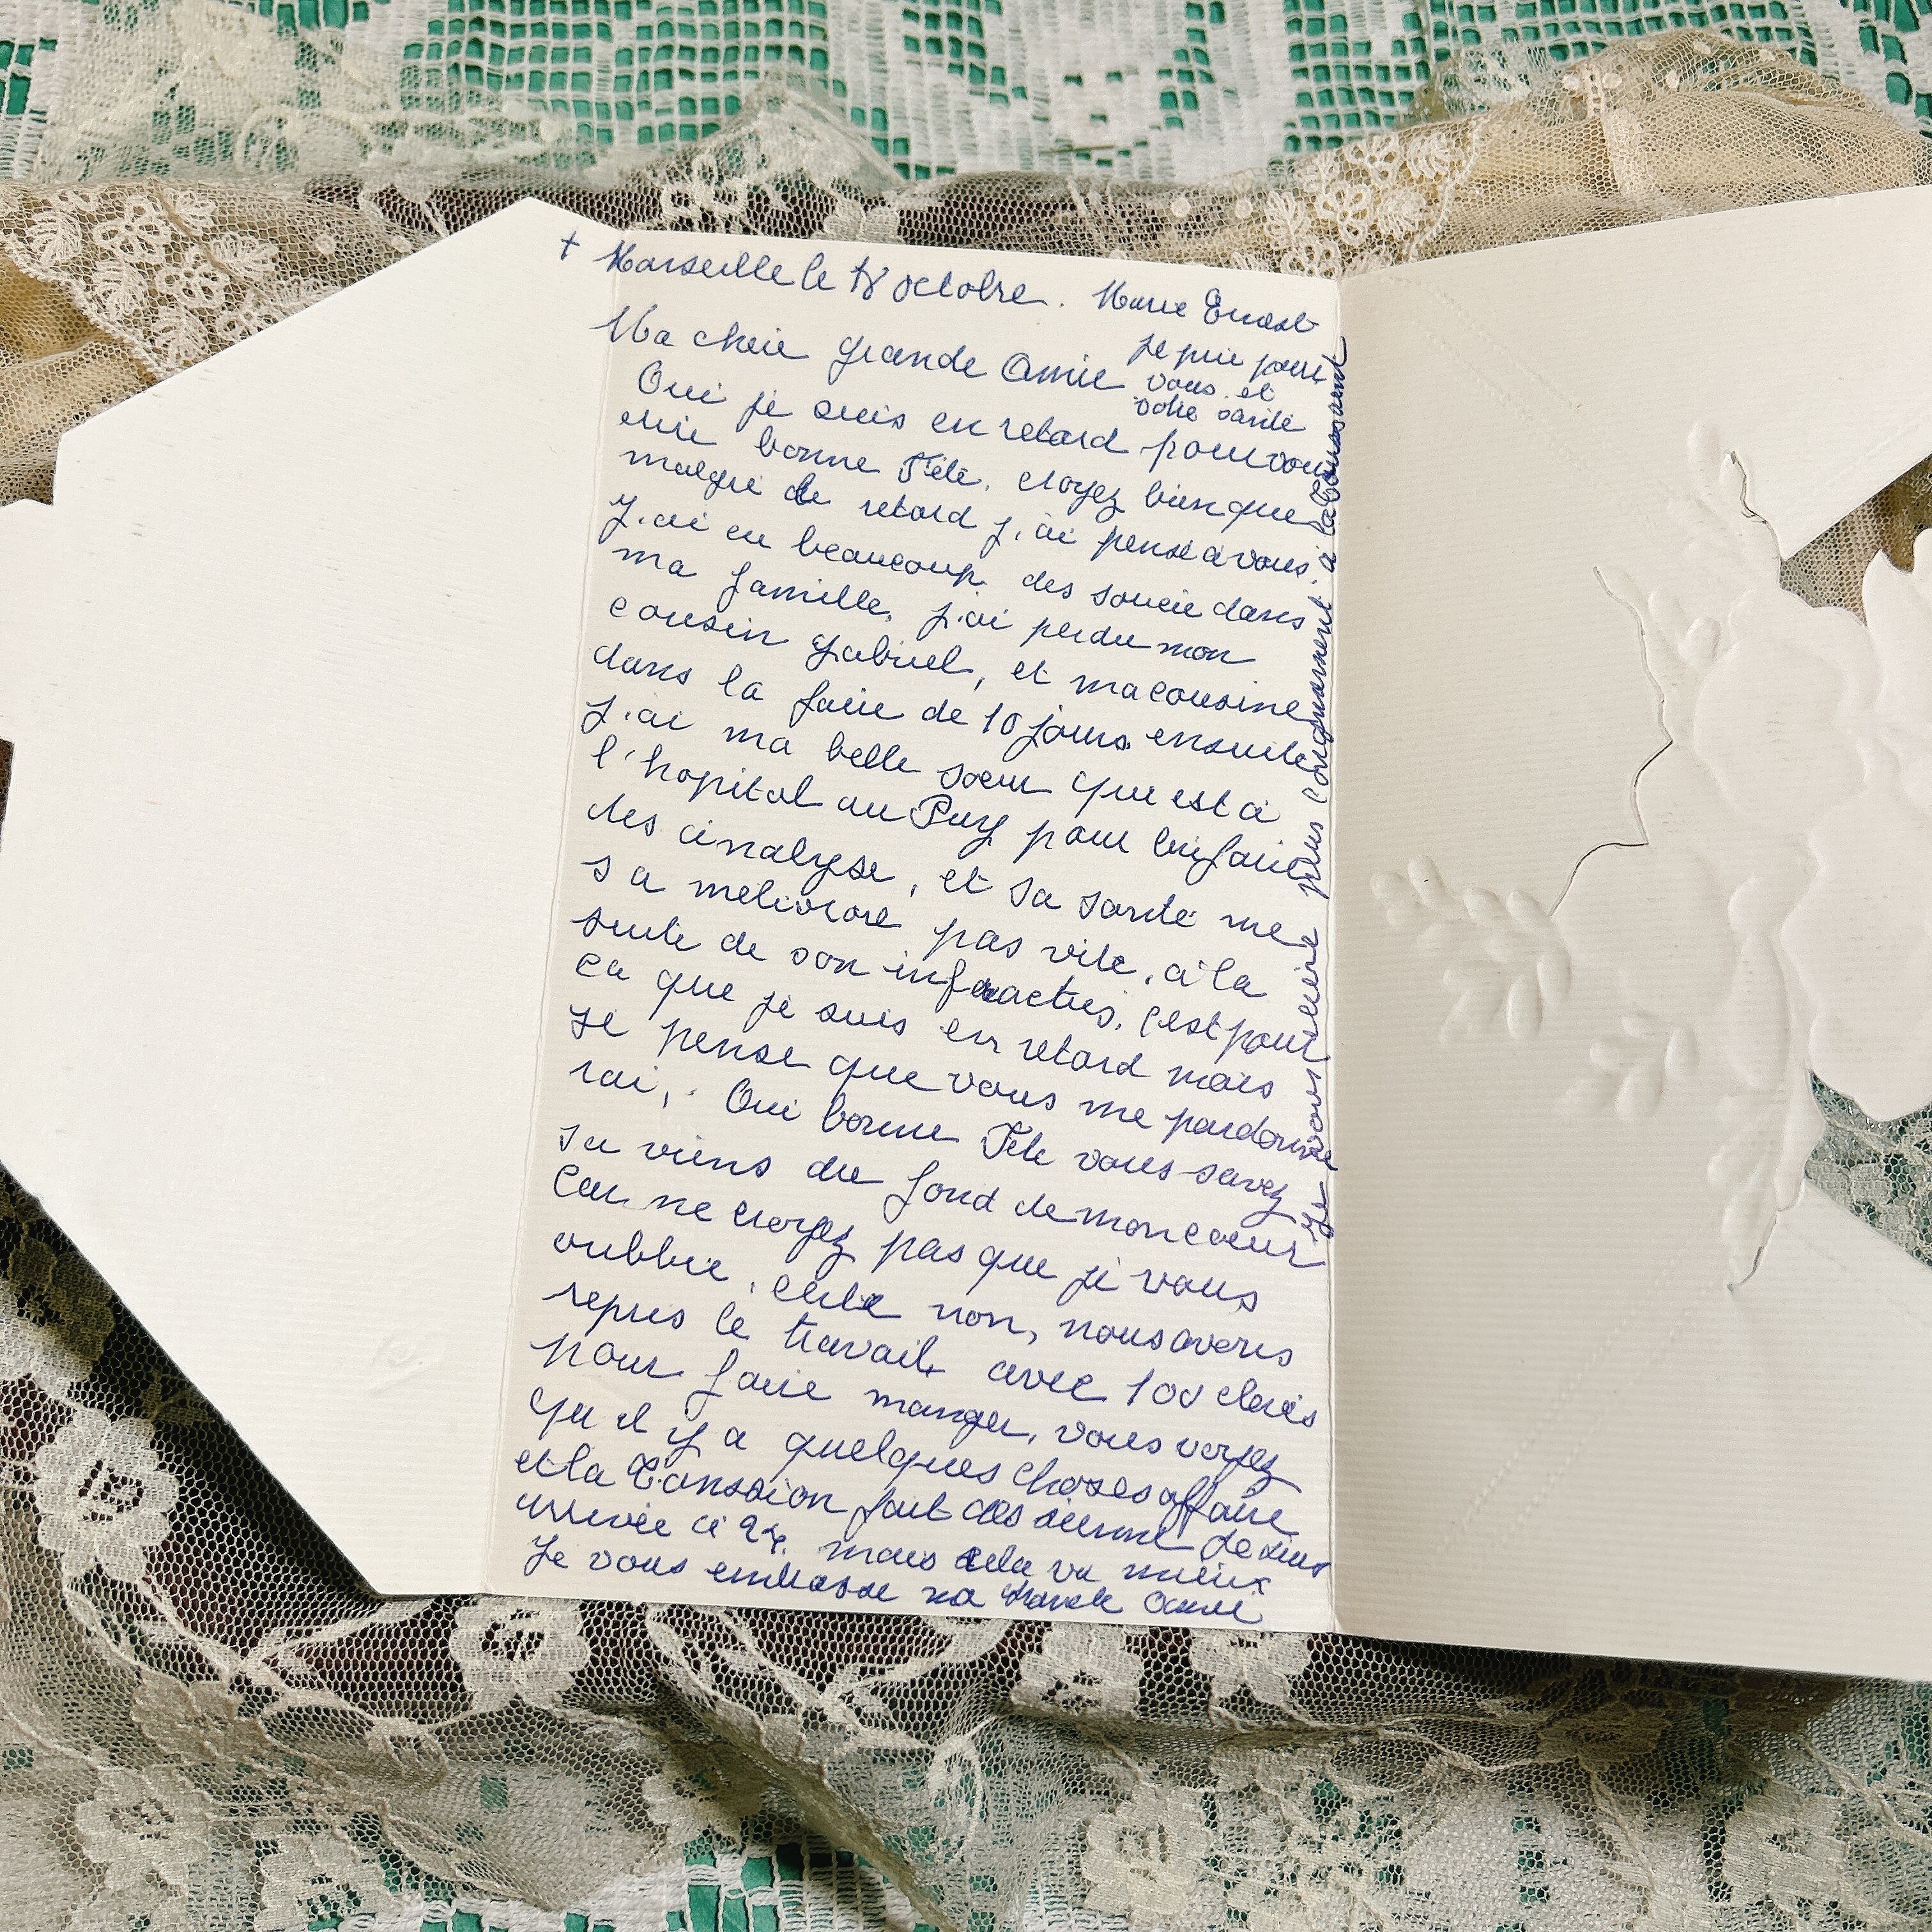 + Marseille le 18 octobre. Marie Ernest
Ma chere grande Amie
je prie pour
vous et
votre santé
Oui je suis en retard pour vous
crire bonne Fête. croyez bien que
malgre le retard j.ai pensé à vous.
J.ai eu beaucoup des soucie dans
ma famille. j.ai perdu mon
cousin Gabriel, et ma cousine
dans la faire de 10 jours ensuite
J.ai ma belle soeur que est à
l'hopital au Puy pour lui faire
des analyse, et sa santé me
s a meliorore pas vite, à la
suite de son infaractus, c'est pour
ca que je suis en retard mais
je pense que vous me pardonne
rai, . Oui bonne Fête vous savez
sa viens du fond de mon coeur
Car ne croyez pas que je vous
oublie, non, nous avons
repris le travail avec 100 cleris
pour faire manger, vous voyez
qu il y a quelques choses affaire
et la Tanssion fait des sienne je suis
arrivée à 24. mais cela va mieux
Je vous embrasse ma Grande Amie
Je vous ecrire plus longuement à la Toussaint